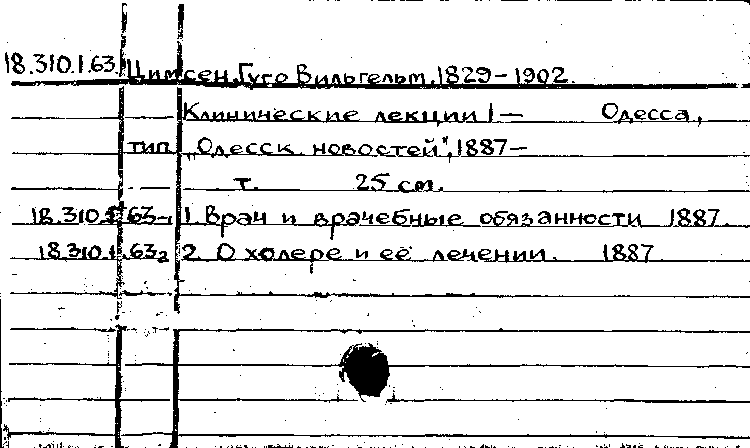 18.310.1.63. Цимсен, Гуго Вильгельм, 1829-1902.
Клинические лекции 1- Одесса,
тип. „Одесск. новостей", 1887-
т. 25 см.
18.310.1.63-1 1. Врач и врачебные обязанности 1887.
18.310.1.632 2. О холере и её лечении. 1887